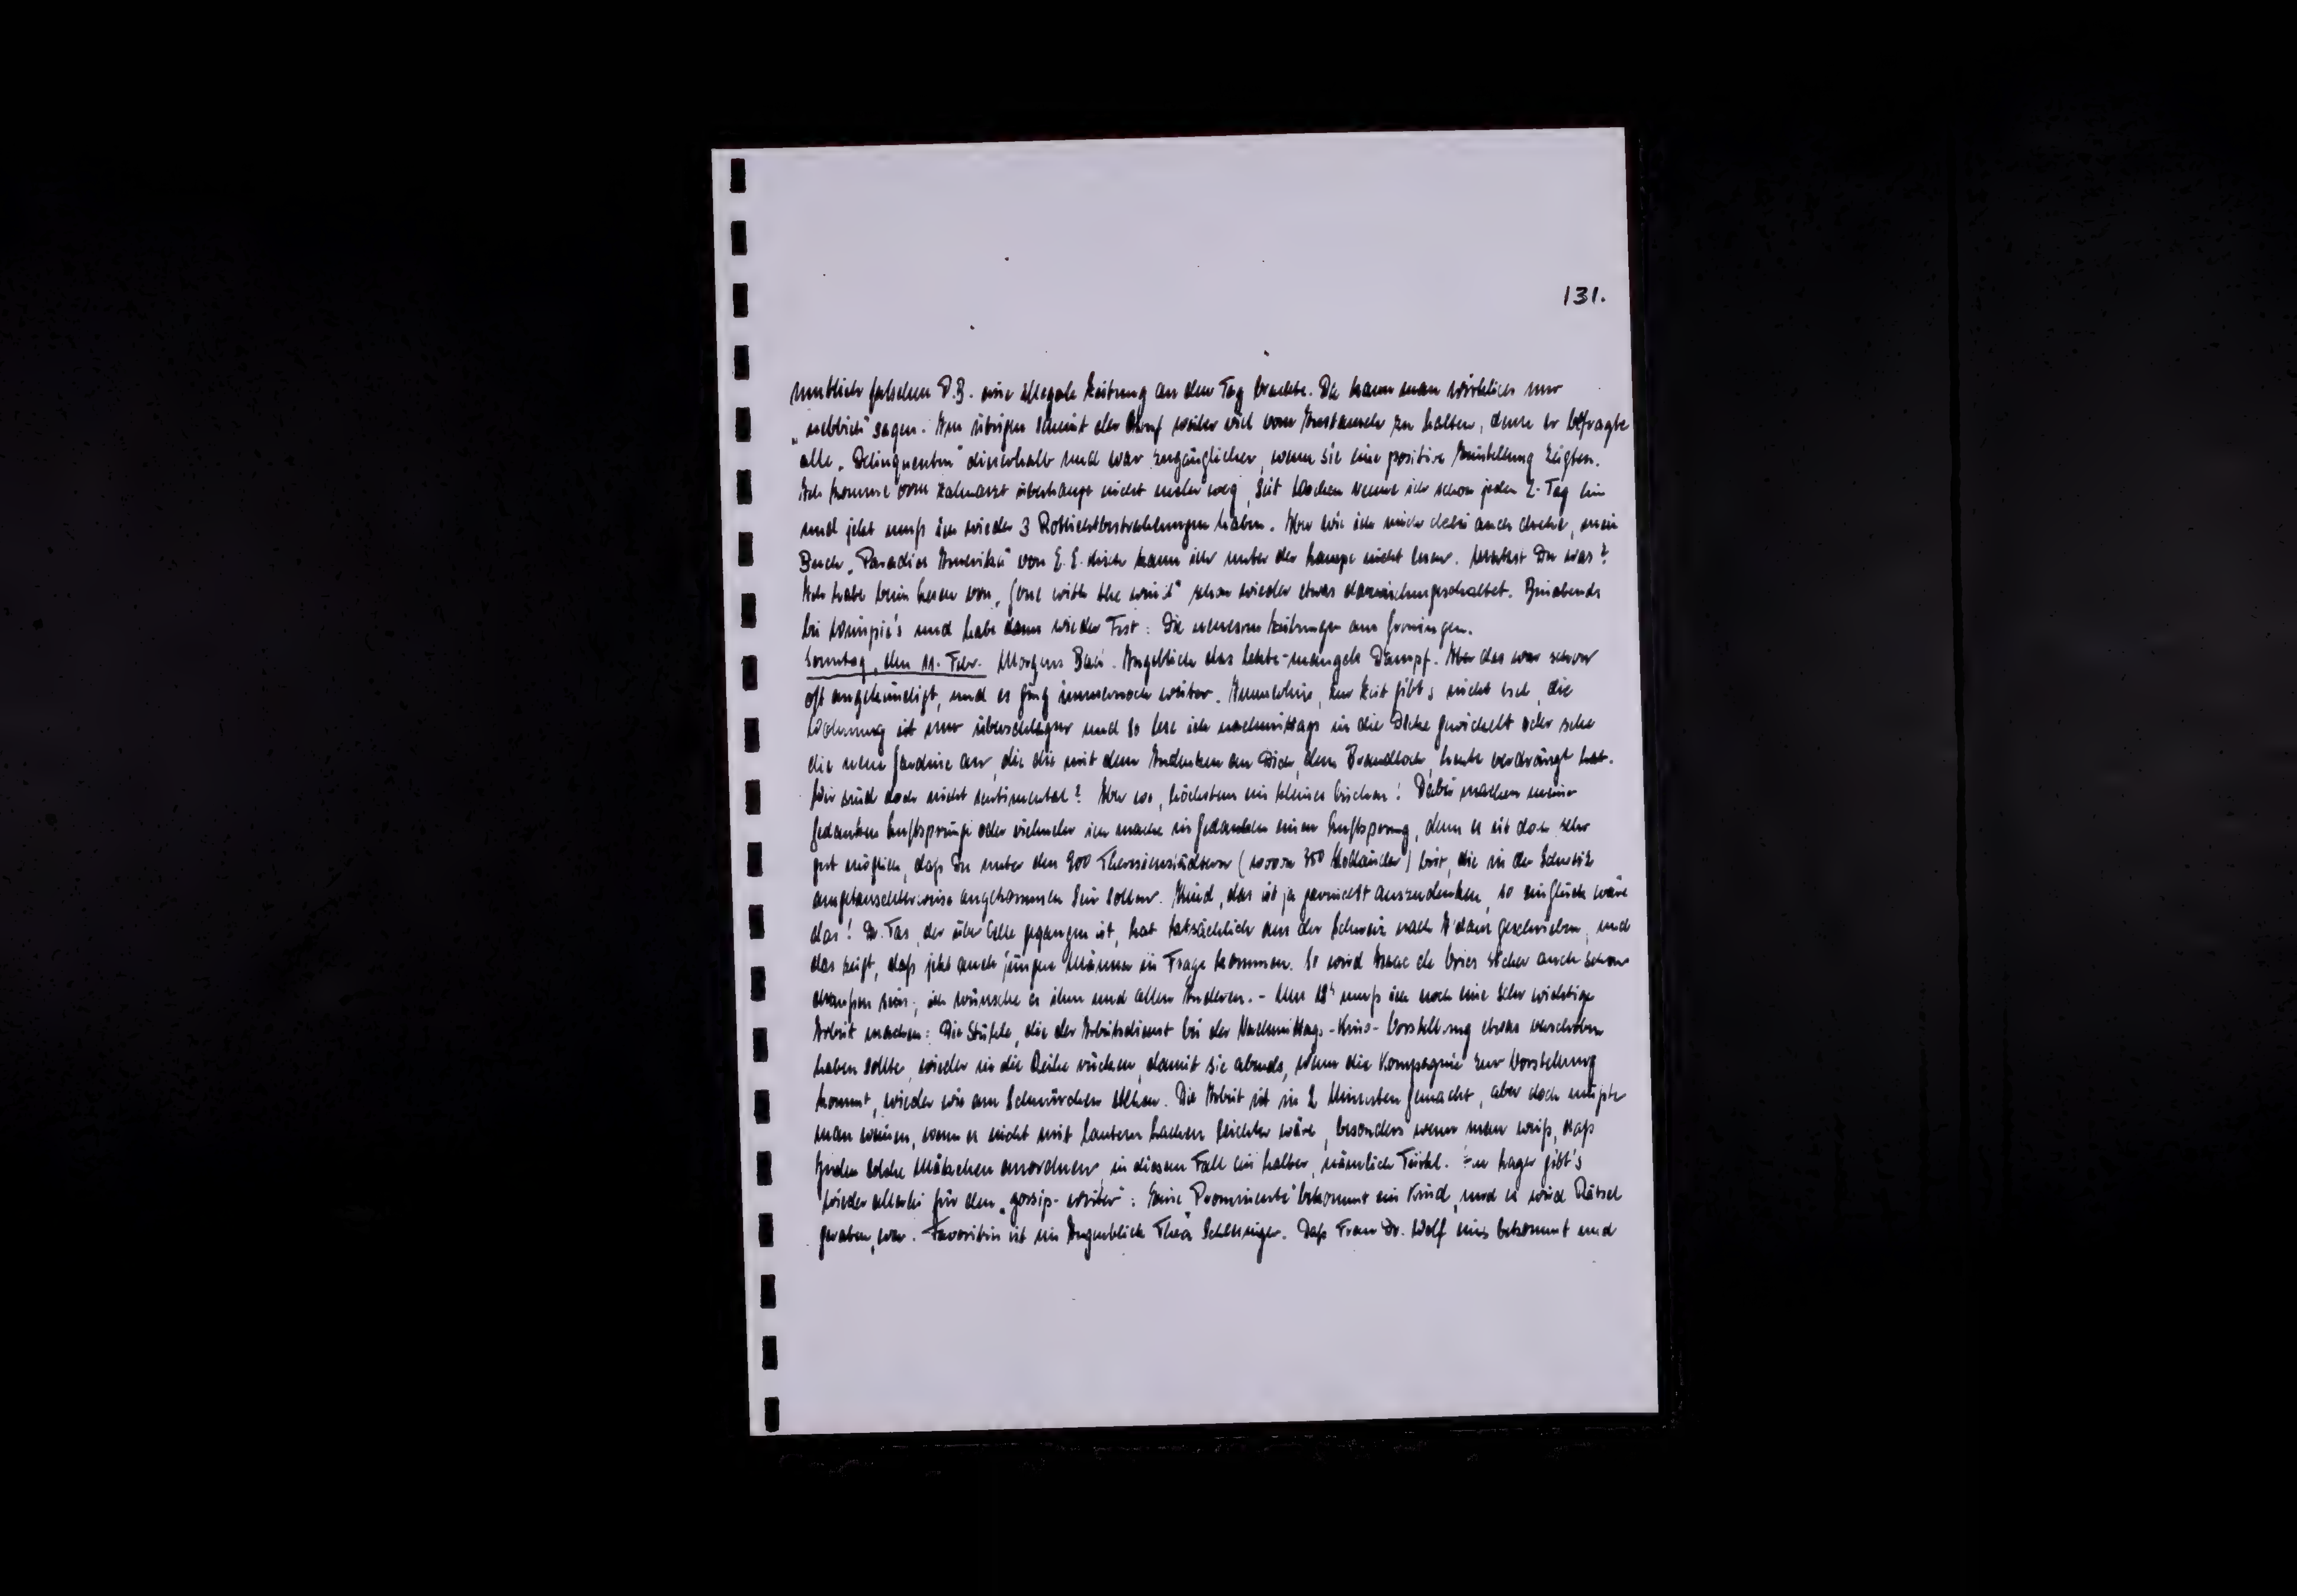 131.
mutlich falschen P.B. eine illegale Zeitung an den Tag brachte. Da kann man wirklich nur
„nebbich" sagen. Im übrigen scheint der weiter viel vom Austausch zu halten, denn er befragte
alle „Delinquenten" dieserhalb und war zugänglicher, wenn sie eine positive Einstellung zeigten.
Ich komme vom Zahnarzt überhaupt nicht mehr weg, seit Wochen renne ich schon jeden 2. Tag hin
und jetzt muß ich wieder 3 Rotlichtbestrahlungen haben. Aber wie ich mich dabei auch drehe, mein
Buch „Paradies Amerika" von E.E. Kisch kann ich unter der Lampe nicht lesen. Merkst Du was?
Ich habe beim Lesen von „Gone with the wind" schon wieder etwas dazwischengeschaltet. Bin abends
bei und habe dann wieder Fest: Die neuesten Zeitungen aus Groningen.
Sonntag, den 11. Febr. Morgens Bad. Angeblich das letzte - mangels Dampf. Aber das war schon
oft angekündigt, und es ging immernoch weiter. Immerhin, zur Zeit gibt's nicht viel, die
Wohnung ist nur überschlagen und so lese ich nachmittags in die Decke gewickelt oder sehe
die neue Gardine an, die die mit dem Andenken an Dich, dem Brandloch, heute verdrängt hat.
Wir sind doch nicht sentimental? Aber wo, höchstens ein kleines bischen! Dabei machen meine
Gedanken Luftsprünge oder vielmehr ich mache in Gedanken einen Luftsprung, denn es ist doch sehr
gut möglich, daß Du unter den 900 Theresienstädtern (wovon 350 Holländer) bist, die in der Schweiz
austauschweise angekommen sein sollen. Kind, das ist ja garnicht auszudenken, so ein Glück wäre
das! Dr. Tas, der über Celle gegangen ist, hat tatsächlich aus der Schweiz nach A'dam geschrieben, und
das zeigt, daß jetzt auch jüngere Männer in Frage kommen. So wird Isaac de Vries sicher auch schon
draußen sein; ich wünsche es ihm und allen Anderen. - Um 18h muß ich noch eine sehr wichtige
Arbeit machen: Die Stühle, die der Arbeitsdienst bei der Nachmittags-Kino-Vorstellung etwas verschoben
haben sollte, wieder in die Reihe rücken, damit sie abends, wenn die Kompagnie zur Vorstellung
kommt, wieder wie am Schnürchen stehen. Die Arbeit ist in 2 Minuten gemacht, aber doch müßte
man weinen, wenn es nicht mit lautem Lachen leichter wäre, besonders wenn man weiß, daß
Juden solche Mätzchen anordnen, in diesem Fall ein halber, nämlich Türkl. Im Lager gibt's
wieder allerlei für den „gossip-writer": Eine „Prominente" bekommt ein Kind, und es wird Rätsel
geraten, wer. Favoritin ist im Augenblick Thea Schlesinger. Daß Frau Dr. Wolf eins bekommt und